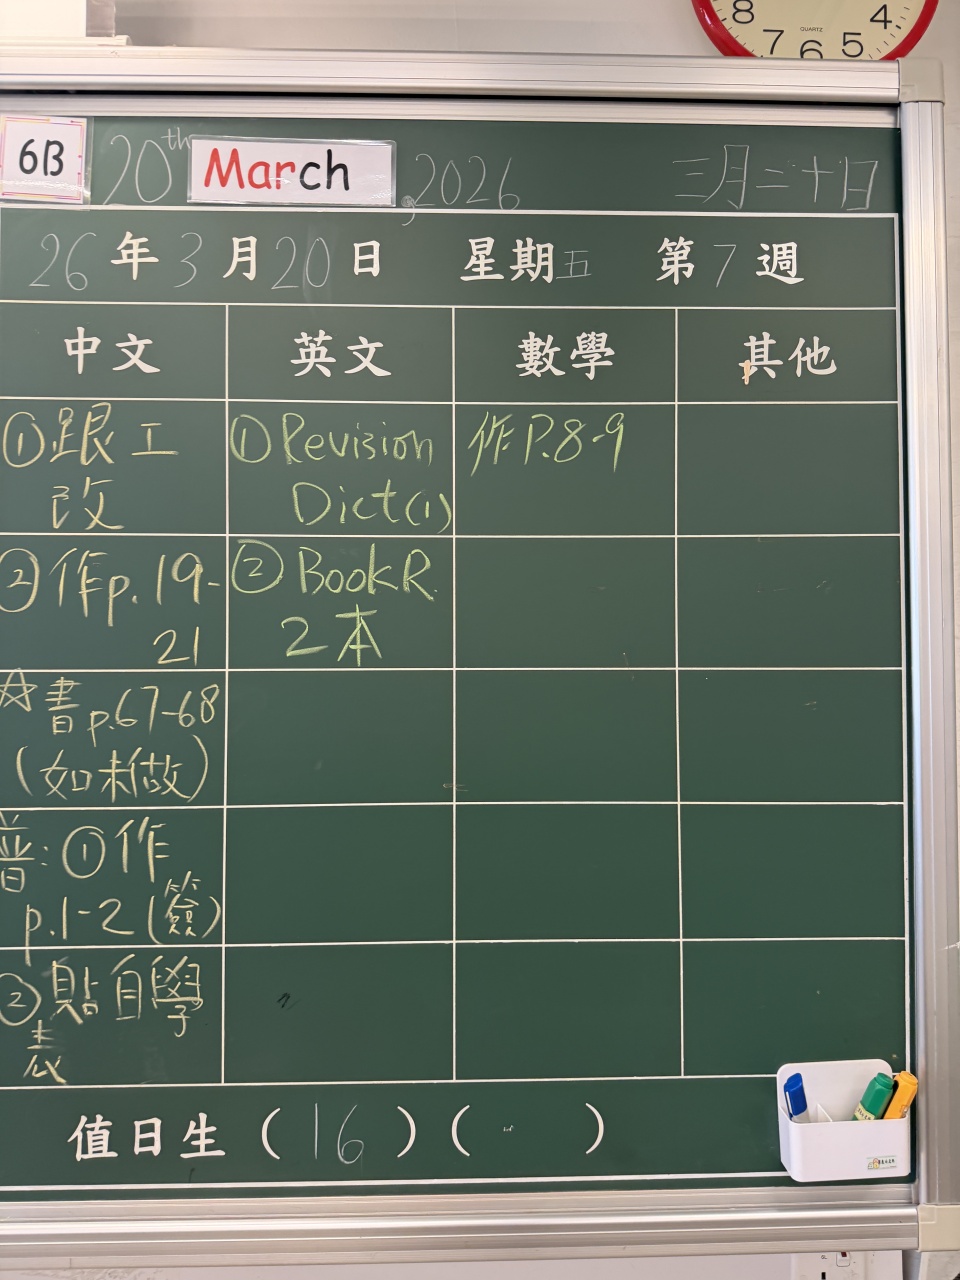 8 7 6 5 4
QUARTZ
6B 20th March, 2026 三月二十日
26年3月20日 星期五 第7週
中文 英文 數學 其他
①跟工
改
①Revision
Dict(1)
作P.8-9
②作p.19-
21
②BookR.
2本
☆書p.67-68
(如未做)
普:①作
p.1-2(簽)
②貼自學
表
值日生(16)( )